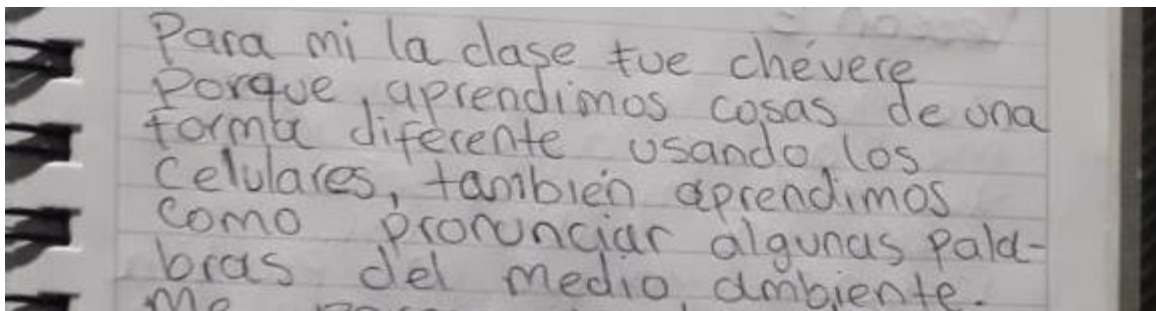 Para mi la clase fue chévere
Porque, aprendimos cosas de una
forma diferente usando los
Celulares, también aprendimos
como pronunciar algunas pala-
bras del medio ambiente.
Me